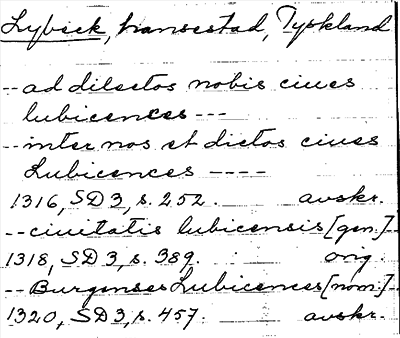 Lybeck, hansestad, Tyskland
-- ad dilectos nobis ciues
lubicences ---
-- inter nos et dictos ciues
Lubicences ----
1316, SD 3, s. 252. avskr.
-- ciuitatis lubicensis [gen.] --
1318, SD 3, s. 389. orig.
-- Burgenses Lubicences [nom.] --
1320, SD 3, s. 457. avskr.